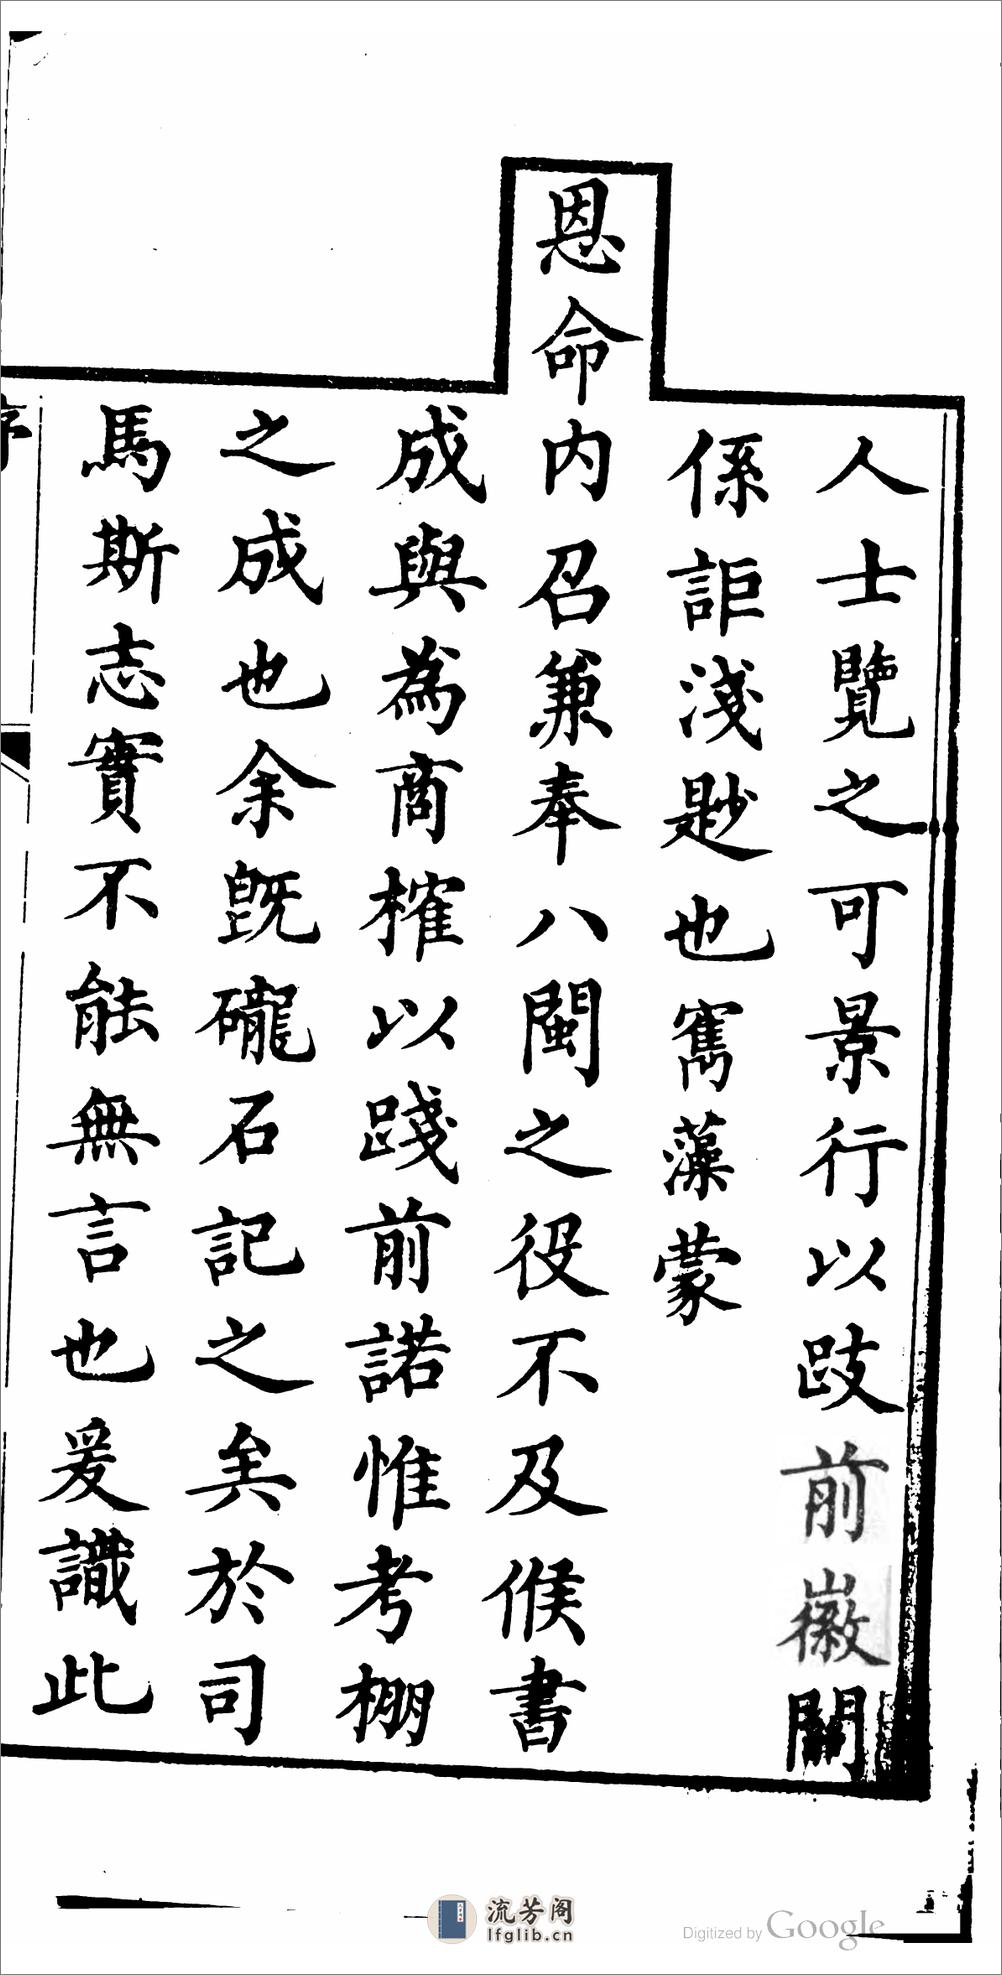 人士覽之可景行以跂前徽關
係詎淺尟也寯藻蒙
恩命内召兼奉八閩之役不及俟書
成與為商榷以踐前諾惟考棚
之成也余旣礲石記之矣於司
馬斯志實不能無言也爰識此
序
流芳阁
lfglib.cn
Digitized by Google